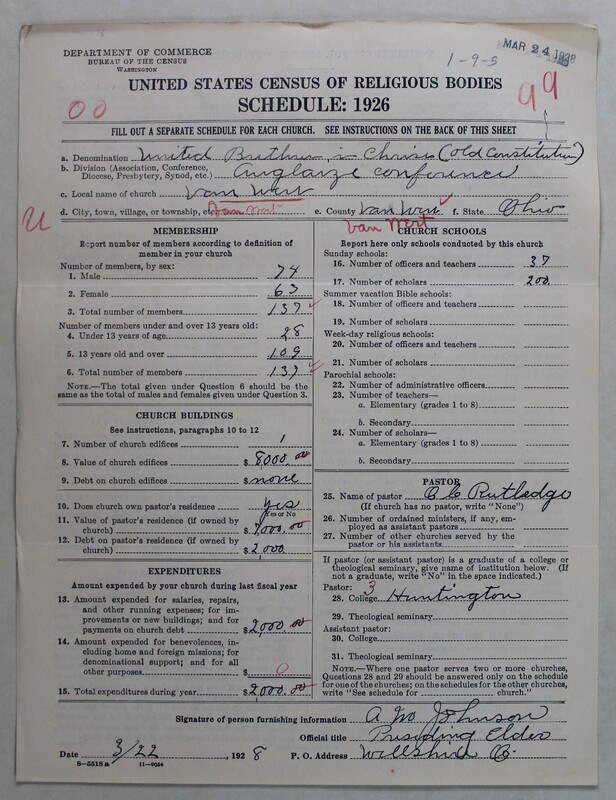 DEPARTMENT OF COMMERCE
BUREAU OF THE CENSUS
WASHINGTON
1-9-5
MAR 24 1928
UNITED STATES CENSUS OF RELIGIOUS BODIES
SCHEDULE: 1926
00
99
FILL OUT A SEPARATE SCHEDULE FOR EACH CHURCH. SEE INSTRUCTIONS ON THE BACK OF THIS SHEET
a. Denomination United Brethren in Christ (Old Constitution)
b. Division (Association, Conference, Diocese, Presbytery, Synod, etc.) Auglaize conference
c. Local name of church Van Wert
d. City, town, village, or township, etc. Van Wert e. County Van Wert f. State Ohio
U
Van Wert
MEMBERSHIP
Report number of members according to definition of
member in your church
Number of members, by sex:
1. Male 74
2. Female 63
3. Total number of members 137
Number of members under and over 13 years old:
4. Under 13 years of age 28
5. 13 years old and over 109
6. Total number of members 137
NOTE.—The total given under Question 6 should be
same as the total of males and females given under Question 3.
CHURCH BUILDINGS
See instructions, paragraphs 10 to 12
7. Number of church edifices 1
8. Value of church edifices $ 8,000.00
9. Debt on church edifices $ none
10. Does church own pastor's residence? yes
Yes or No
11. Value of pastor's residence (if owned by
church) $ ,000.00
12. Debt on pastor's residence (if owned by
church) $ 2,000
EXPENDITURES
Amount expended by your church during last fiscal year
13. Amount expended for salaries, repairs,
and other running expenses; for im-
provements or new buildings; and for
payments on church debt $ 2,000.00
14. Amount expended for benevolences, in-
cluding home and foreign missions; for
denominational support; and for all
other purposes $ 0
15. Total expenditures during year $ 2,000.00
CHURCH SCHOOLS
Report here only schools conducted by this church
Sunday schools:
16. Number of officers and teachers 37
17. Number of scholars 200
Summer vacation Bible schools:
18. Number of officers and teachers
19. Number of scholars
Week-day religious schools:
20. Number of officers and teachers
21. Number of scholars
Parochial schools:
22. Number of administrative officers
23. Number of teachers—
a. Elementary (grades 1 to 8)
b. Secondary
24. Number of scholars—
a. Elementary (grades 1 to 8)
b. Secondary
PASTOR
25. Name of pastor C C Rutledge
(If church has no pastor, write "None")
26. Number of ordained ministers, if any, em-
ployed as assistant pastors
27. Number of other churches served by the
pastor or his assistants
If pastor (or assistant pastor) is a graduate of a college or
theological seminary, give name of institution below. (If
not a graduate, write "No" in the space indicated.)
Pastor: 3
28. College Huntington
29. Theological seminary
Assistant pastor:
30. College
31. Theological seminary
NOTE.—Where one pastor serves two or more churches,
Questions 28 and 29 should be answered only on the schedule
for one of the churches; on the schedules for the other churches,
write "See schedule for church."
Signature of person furnishing information Johnson
Official title Presiding Elder
Date 3/22, 1928 P. O. Address Willshire O.
8-5518a 11-9054